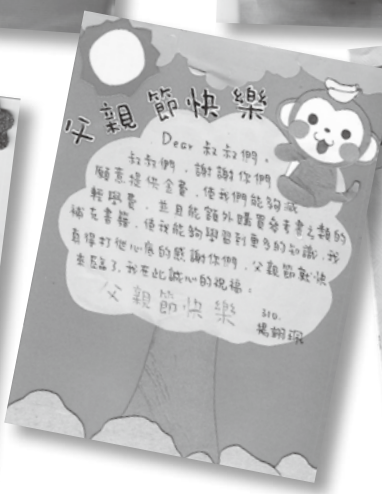 父親節快樂
Dear 叔叔們,
叔叔們,謝謝你們
願意提供金費,使我們能夠減
輕學費,並且能額外購買參考書之類的
補充書籍,使我能夠學習到更多的知識,我
真得打從心底的感謝你們,父親節歡快
來臨了,我在此誠心的祝福。
父親節快樂
310.
楊翊